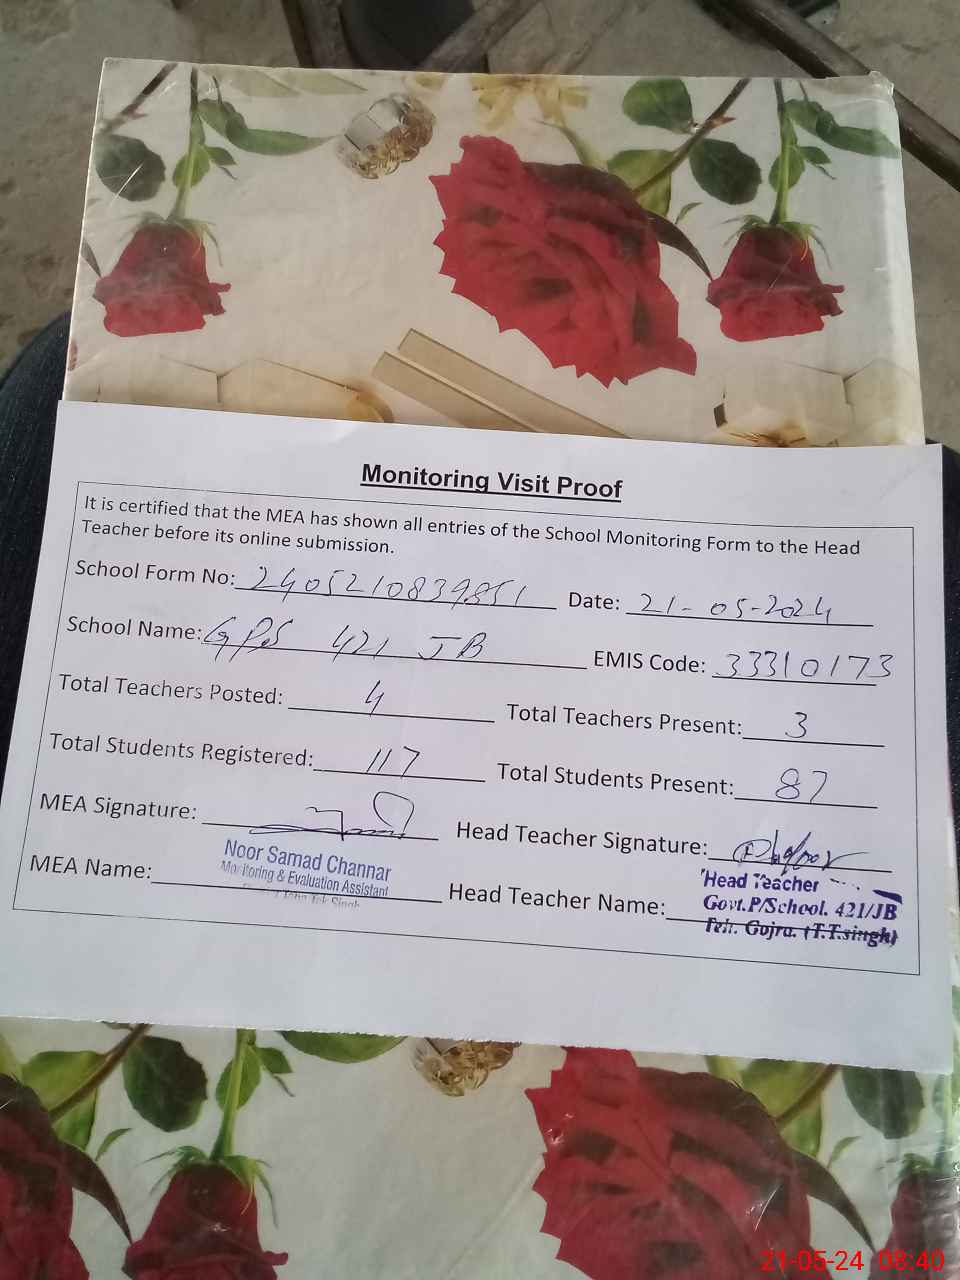 Monitoring Visit Proof
It is certified that the MEA has shown all entries of the School Monitoring Form to the Head
Teacher before its online submission.
School Form No: 2405210839851 Date: 21-05-2024
School Name: GPS 421 JB EMIS Code: 33310173
Total Teachers Posted: 4 Total Teachers Present: 3
Total Students Registered: 117 Total Students Present: 87
MEA Signature: Head Teacher Signature:
MEA Name: Noor Samad Channar
Monitoring & Evaluation Assistant
Head Teacher Name: Head Teacher
Govt.P/School. 421/JB
Teh. Gojra. (T.T.singh)
21-05-24 08:40